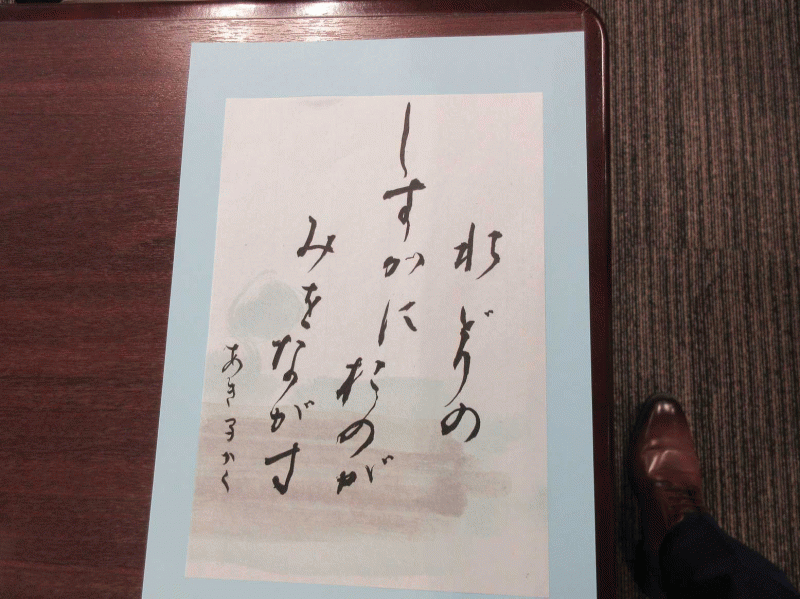 水どりの
しすかに
おのが
みをながす
あき子かく